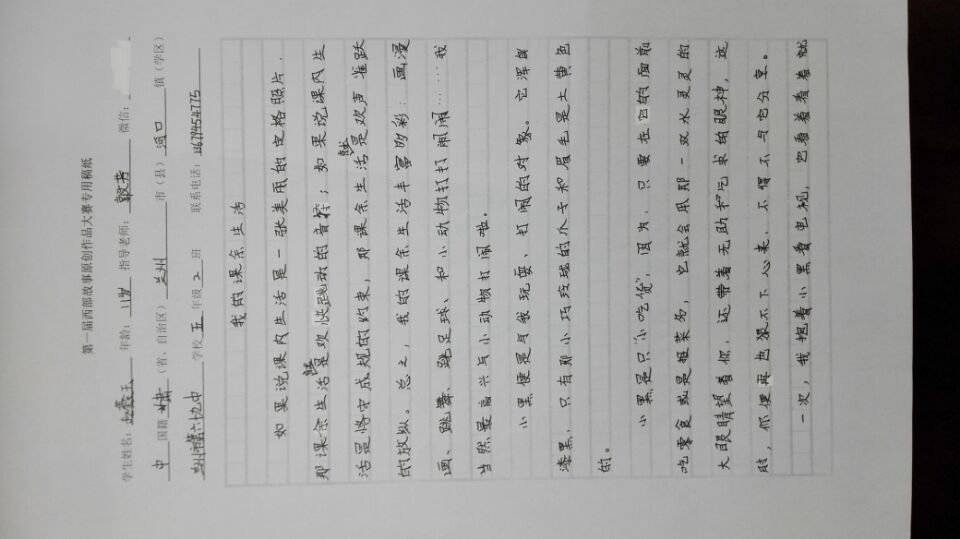 第一届西部故事原创作品大赛专用稿纸
学生姓名： 年龄：11岁 指导老师：郭芳 微信：
中 国籍 甘肃 （省、自治区） 兰州 市（县） 河口 镇（学区）
兰州市第六十九中 学校 五 年级 2 班 联系电话：13679454775
我的课余生活
如果说课内生活是一张美丽的定格照片，
那课余生活就是欢快跳动的音符；如果说课内生
活是恪守成规的约束，那课余生活就是欢声雀跃
的放纵。总之，我的课余生活丰富多彩：画漫
画、跳舞、踢足球、和小动物打打闹闹……我
当然最高兴与小动物打闹啦。
小黑便是与我玩耍、打闹的对象。它浑身
漆黑，只有那小巧玲珑的爪子和眉毛是土黄色
的。
小黑是只“小吃货”，因为，只要在它的面前
吃零食或是挺菜肴，它就会用那一双水灵灵的
大眼睛望着你，还带着无助和乞求的眼神，这
时，你便再也狠不下心来，不得不与它分享。
一次，我抱着小黑看电视，它看着看着就